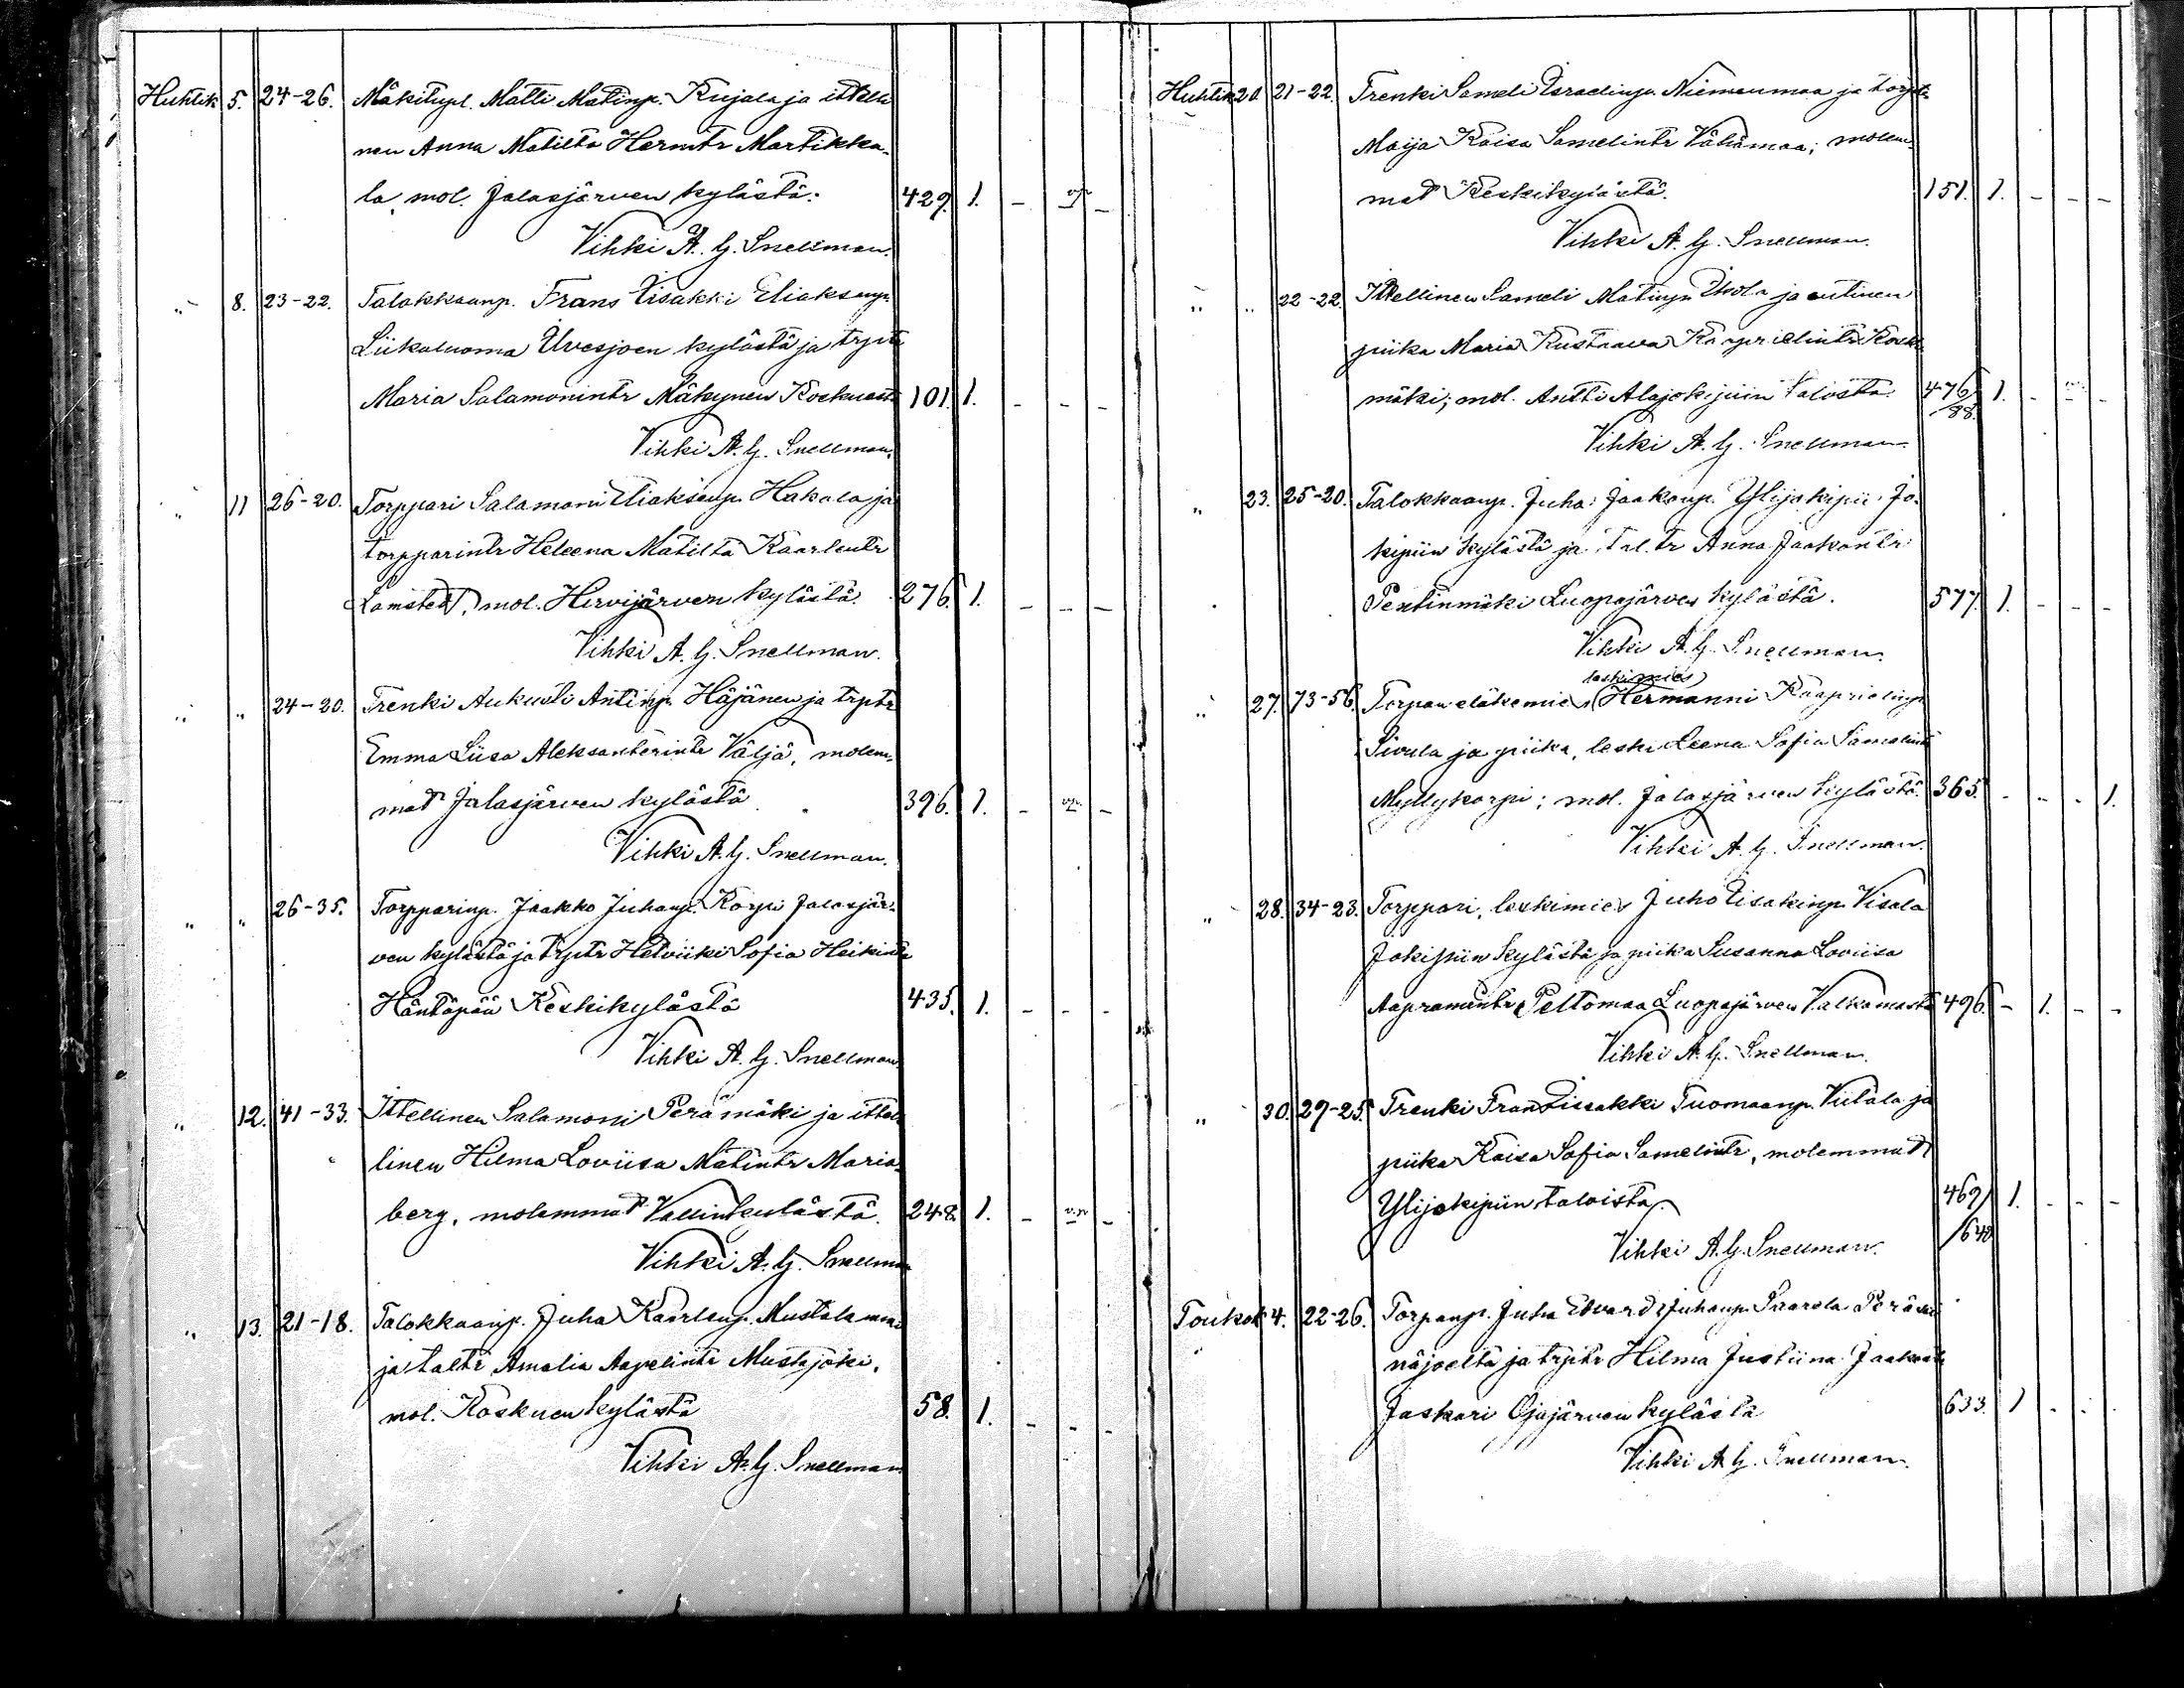 Huhtik 5. 24-26. Mäkitupl. Matti Matinp. Kujala ja ittelli
nen Anna Matilta Hermtr Martikka-
la, mol. Jalasjärven kylästä. 429. 1. - vp -
Vihki A. G. Snellman.
" 8. 23-22. Talokkaanp. Frans Iisakki Eliaksenp.
Liikaluoma Ilvesjoen kylästä ja trptr
Maria Salamonintr Mäkynen Koskuesta 101. 1. - - -
Vihki A. G. Snellman.
" 11 26-20. Torppari Salamoni Eliaksenp. Hakala ja
torpparintr Heleena Matilta Kaarlentr
Lamsted, mol. Hirvijärven kylästä. 276. 1. - - -
Vihki A. G. Snellman.
" " 24-20. Trenki Aukusti Antinp. Häjänen ja trptr
Emma Liisa Aleksanterintr Väljä, molem-
mat Jalasjärven kylästä 396. 1. - vp. -
Vihki A. G. Snellman.
" " 26-35. Torpparinp. Jaakko Juhanp. Korpi Jalasjär-
ven kylästä ja trptr Helviiki Sofia Heikintr
Häntäpää Keskikylästä 435. 1. - - -
Vihki A. G. Snellman.
" 12. 41-33. Ittellinen Salamoni Perämäki ja ittel-
linen Hilma Loviisa Matintr Maria-
berg, molemmat Vallinkylästä. 248. 1. - v.p -
Vihki A. G. Snellman
" 13. 21-18. Talokkaanp. Juha Kaarlenp. Mustalammi
ja taltr Amalia Aapelintr Mustajoki,
mol. Koskuen kylästä 58. 1. - - -
Vihki A. G. Snellman
Huhtik 20. 21-22. Trenki Sameli Israelinp. Niemenmaa ja torptr
Maija Kaisa Samelintr Vähämaa; molem-
mat Keskikylästä. 151. 1. - - -
Vihki A. G. Snellman.
" " 22-22. Ittellinen Sameli Matinp. Ihola ja entinen
piika Maria Kustaava Kaaprielintr
mäki; mol. Antti Alajokipiin talosta. 476/88. 1. - -
Vihki A. G. Snellman.
" 23. 25-20. Talokkaanp. Juha Jaakonp. Ylijokipii Jo-
kipiin kylästä ja tal.tr Anna Jaakontr
Pentinmäki Luopajärven kylästä. 577. 1. - - -
Vihki A. G. Snellman.
leskimies
" 27. 73-56. Torpan eläkemies Hermanni Kaaprielinp
Sivula ja piika, leski Leena Sofia Samelintr
Myllykorpi; mol. Jalasjärven kylästä. 365. - - - 1.
Vihki A. G. Snellman.
" 28. 34-23. Torppari, leskimies Juho Iisakinp. Visala
Jokipiin kylästä ja piika Susanna Loviisa
Aapramintr Peltomaa Luopajärven Valkamasta 496. - 1. - -
Vihki A. G. Snellman.
" 30. 29-25. Trenki Frans Iisakki Tuomaanp. Viitala ja
piika Kaisa Sofia Samelintr, molemmat
Ylijokipiin taloista. 469/640 1. - - -
Vihki A. G. Snellman.
Toukok 4. 22-26. Torpanp. Juha Edvard Juhanp. Saarela Peräsei
näjoelta ja trptr Hilma Justiina Jaakontr
Jaskari Ojajärven kylästä 633. 1 - - -
Vihki A. G. Snellman.